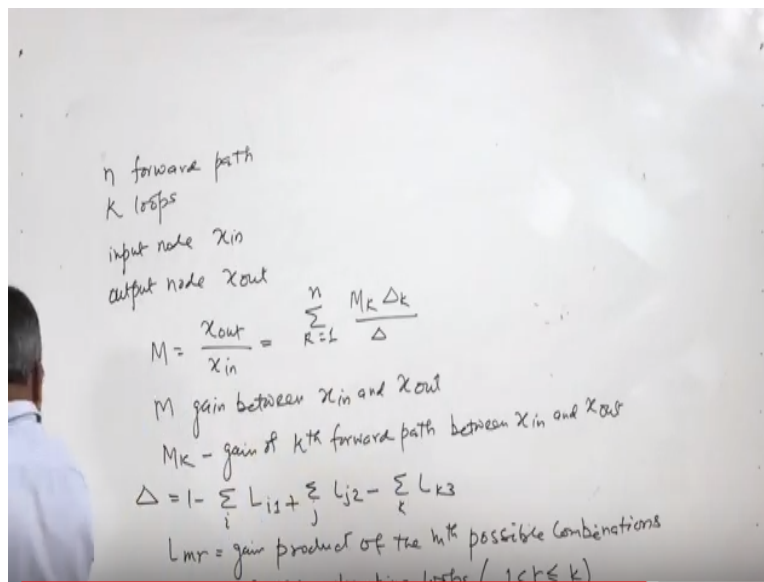 n forward path
K loops
input node xin
output node xout
M = xout / xin = n Σ K=1 MK ΔK / Δ
M gain between xin and xout
MK - gain of Kth forward path between xin and xout
Δ = 1 - Σ i Li1 + Σ j Lj2 - Σ k Lk3
Lmr = gain product of the mth possible combinations
loops ( 1≤r≤ k)